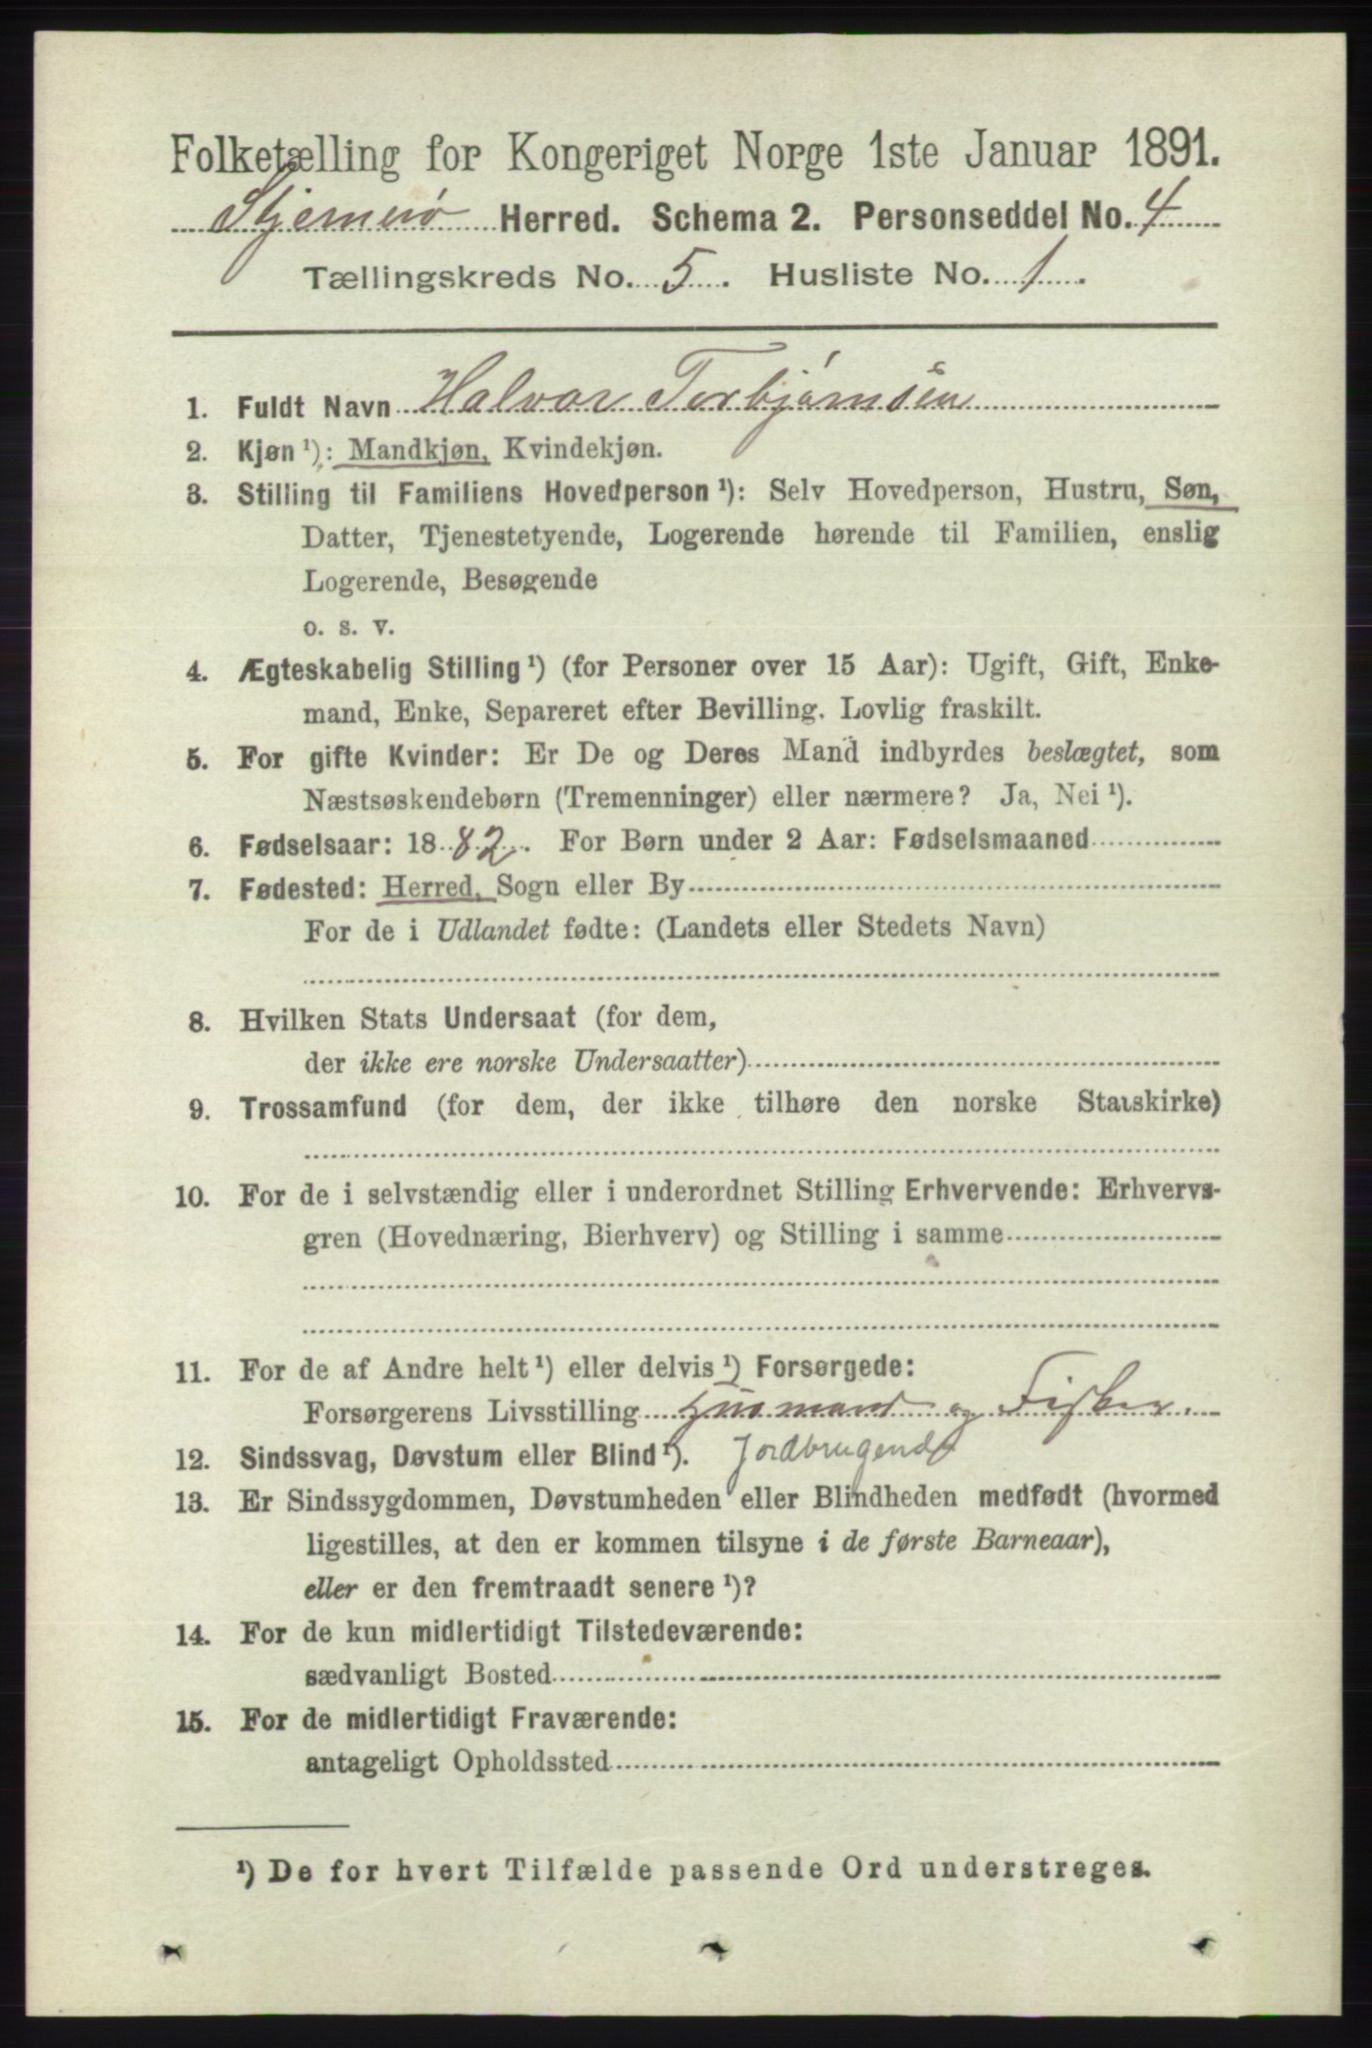 Folketælling for Kongeriget Norge 1ste Januar 1891.
Stjernerö Herred. Schema 2. Personseddel No. 4
Tællingskreds No. 5. Husliste No. 1.
1. Fuldt Navn Halvor Torbjørnsen
2. Kjøn ¹): Mandkjøn, Kvindekjøn.
3. Stilling til Familiens Hovedperson ¹): Selv Hovedperson, Hustru, Søn,
Datter, Tjenestetyende, Logerende hørende til Familien, enslig
Logerende, Besøgende
o. s. v.
4. Ægteskabelig Stilling ¹) (for Personer over 15 Aar): Ugift, Gift, Enke-
mand, Enke, Separeret efter Bevilling. Lovlig fraskilt.
5. For gifte Kvinder: Er De og Deres Mand indbyrdes beslægtet, som
Næstsøskendebørn (Tremenninger) eller nærmere? Ja, Nei ¹).
6. Fødselsaar: 1882. For Børn under 2 Aar: Fødselsmaaned
7. Fødested: Herred, Sogn eller By
For de i Udlandet fødte: (Landets eller Stedets Navn)
8. Hvilken Stats Undersaat (for dem,
der ikke ere norske Undersaatter)
9. Trossamfund (for dem, der ikke tilhøre den norske Statskirke)
10. For de i selvstændig eller i underordnet Stilling Erhvervende: Erhvervs-
gren (Hovednæring, Bierhverv) og Stilling i samme
11. For de af Andre helt ¹) eller delvis ¹) Forsørgede:
Forsørgerens Livsstilling Husmand og Fisker.
12. Sindssvag, Døvstum eller Blind ¹). Jordbrugende
13. Er Sindssygdommen, Døvstumheden eller Blindheden medfødt (hvormed
ligestilles, at den er kommen tilsyne i de første Barneaar),
eller er den fremtraadt senere ¹)?
14. For de kun midlertidigt Tilstedeværende:
sædvanligt Bosted
15. For de midlertidigt Fraværende:
antageligt Opholdssted
¹) De for hvert Tilfælde passende Ord understreges.